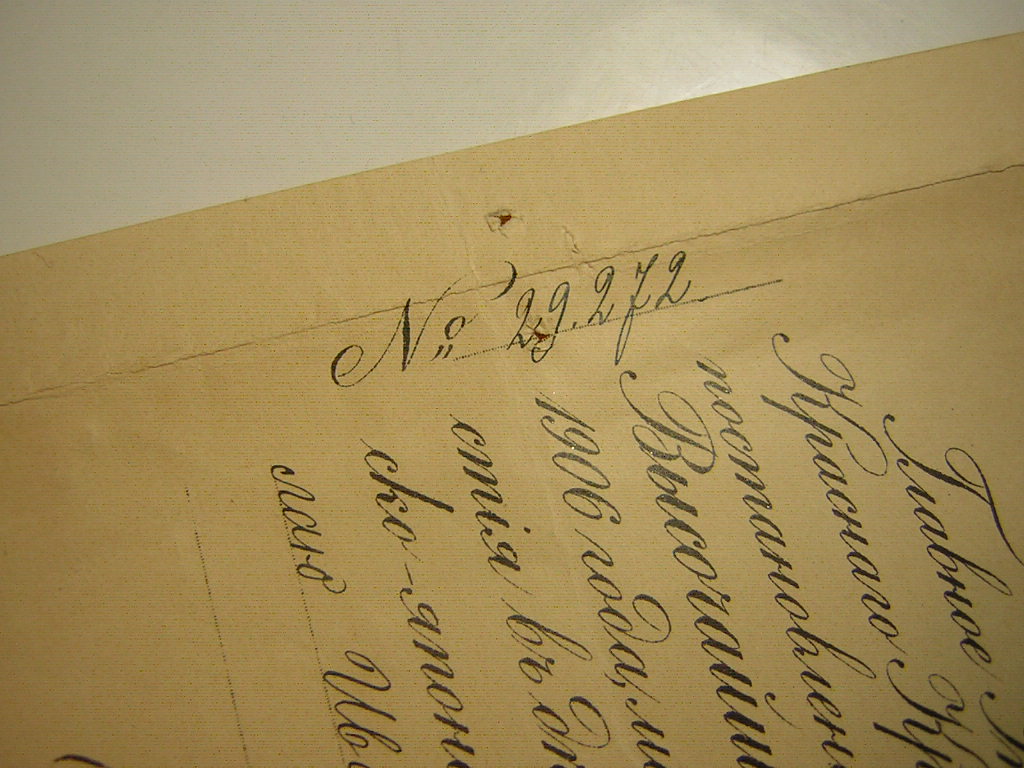 № 29.272
Главное
Краснаго Кр
постановлен
Высочайш
1906 года, м
стія въ
ско-япон
лаю Ив